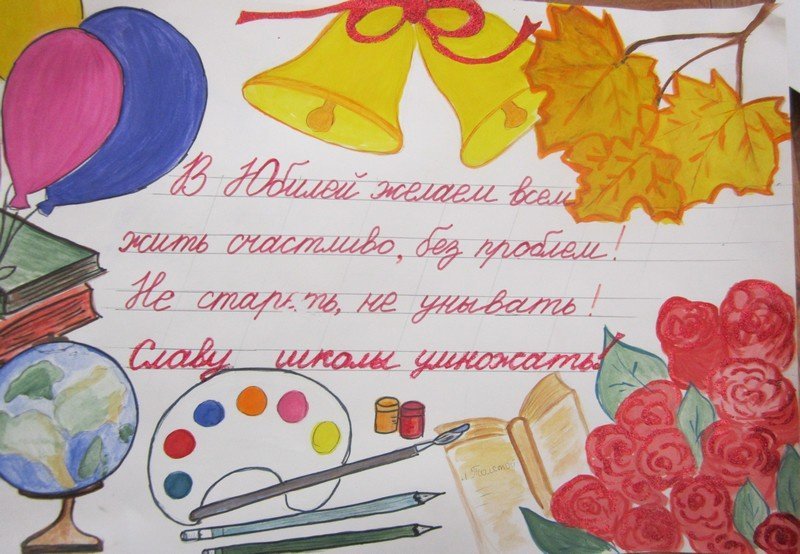 В Юбилей желаем всем
жить счастливо, без проблем!
Не стареть, не унывать!
Славу школы умножать!
Л. Толстой